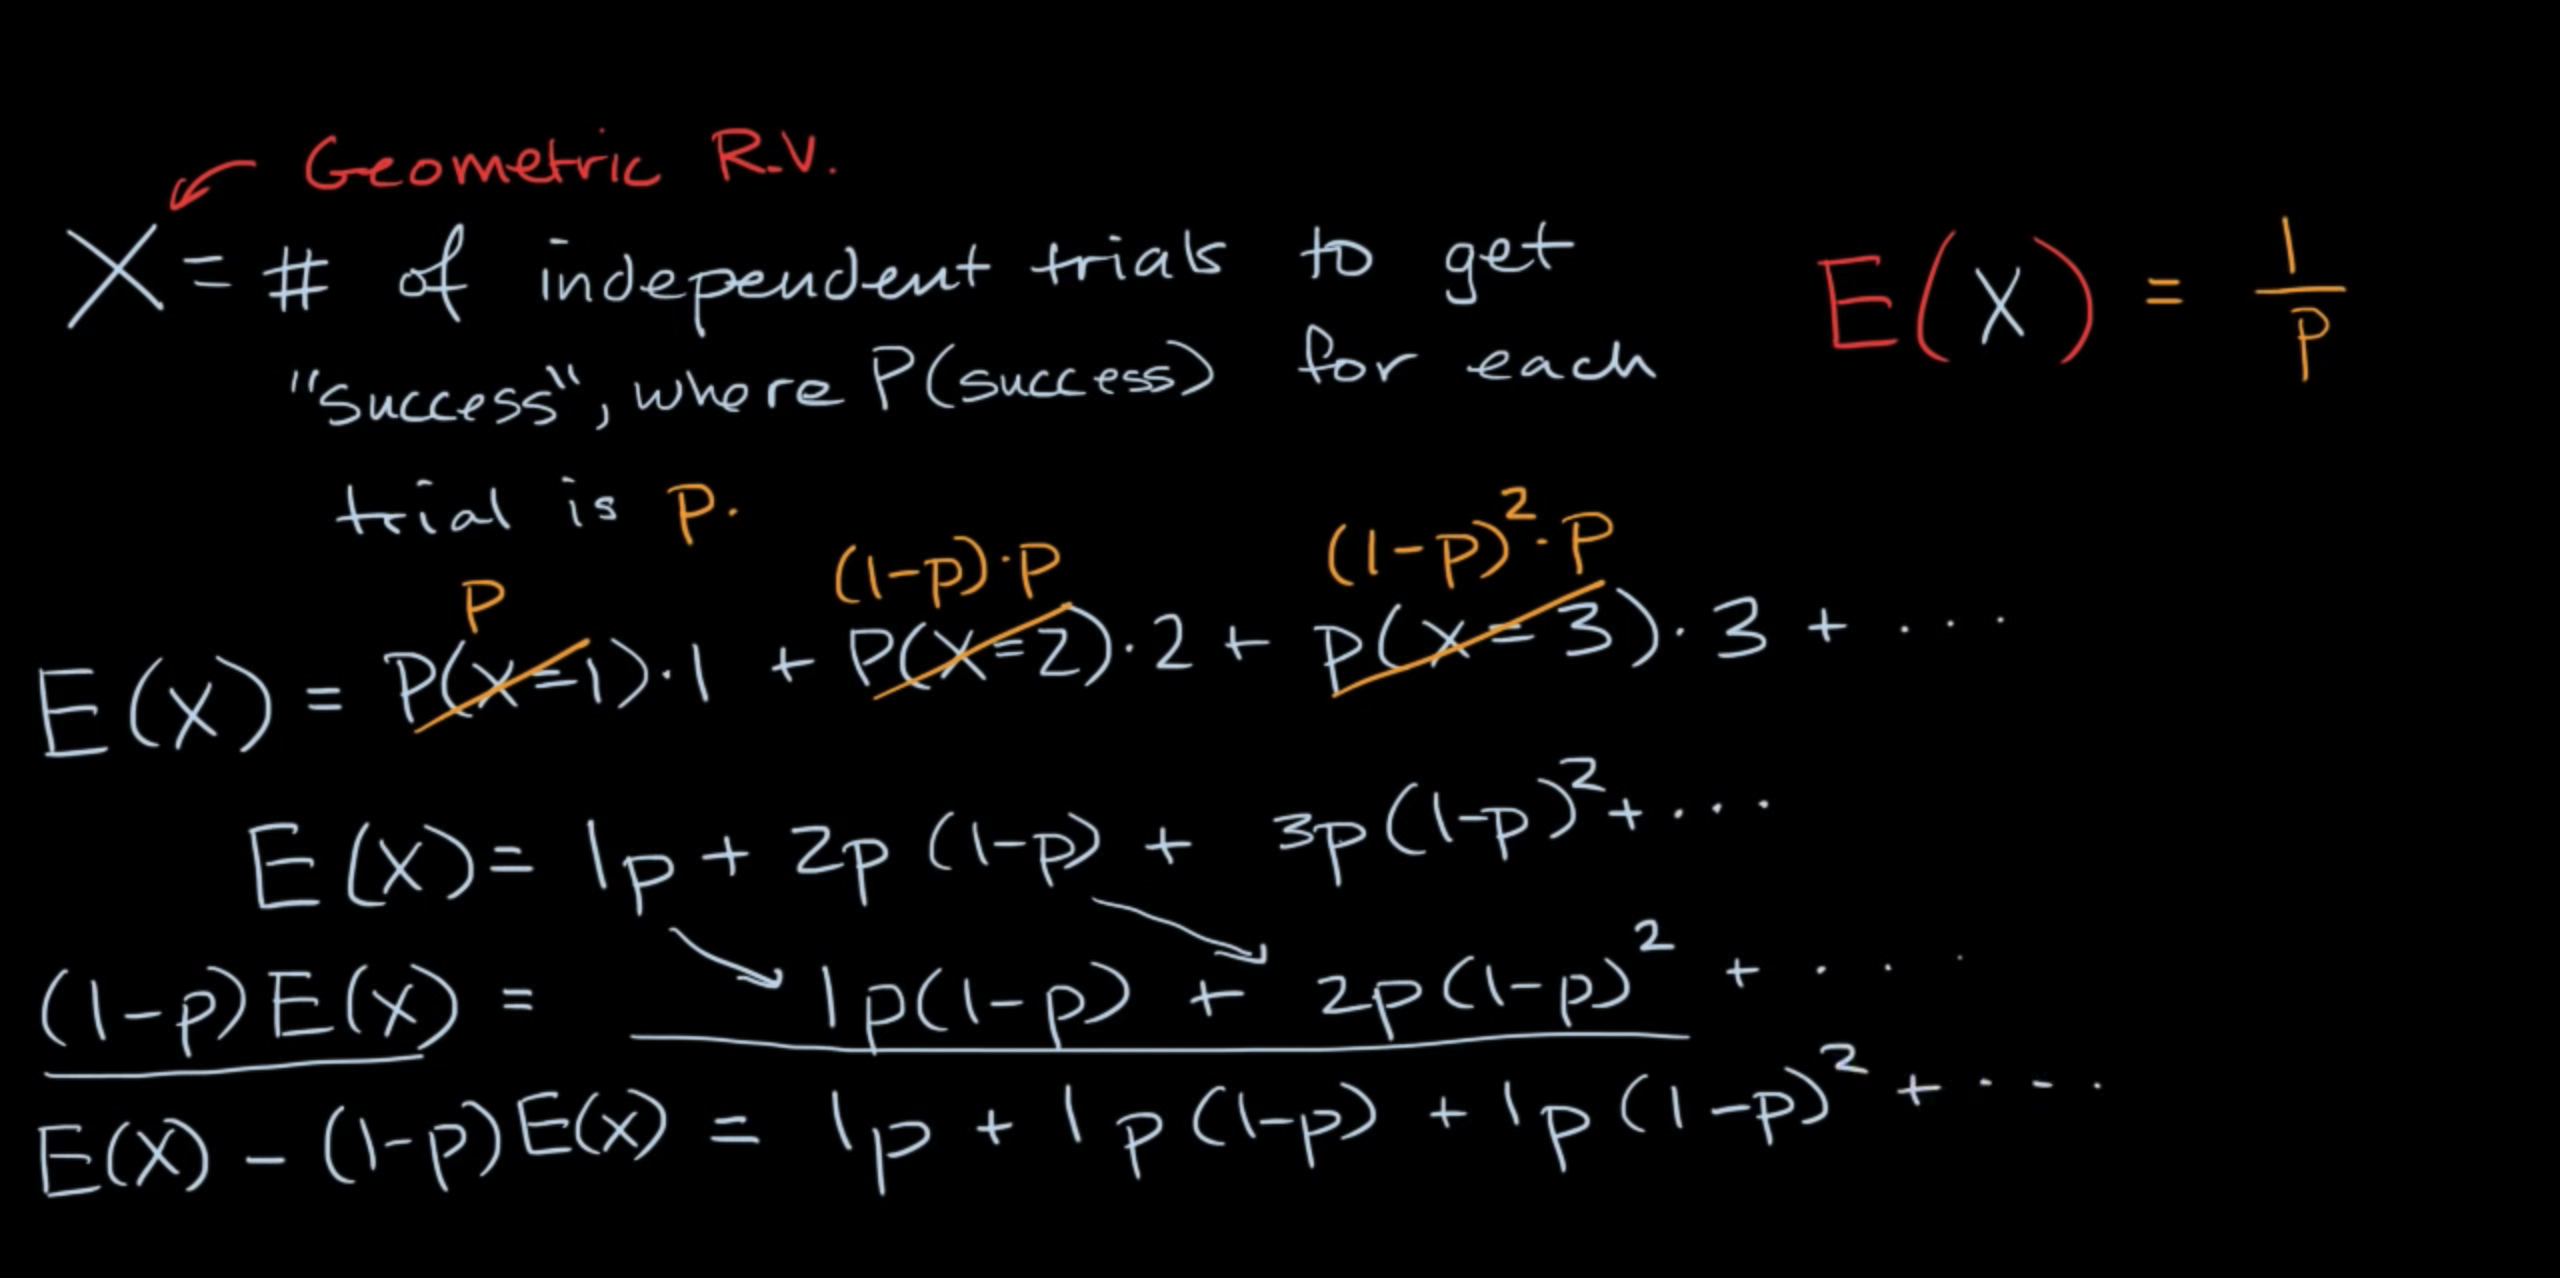 Geometric R.V.
X = # of independent trials to get
"success", where P(success) for each
trial is p.
E(X) = 1/p
p (1-p)·p (1-p)²·p
E(X) = P(X=1)·1 + P(X=2)·2 + P(X=3)·3 + ···
E(X) = 1p + 2p(1-p) + 3p(1-p)² + ···
(1-p)E(X) = 1p(1-p) + 2p(1-p)² + ····
E(X) - (1-p)E(X) = 1p + 1p(1-p) + 1p(1-p)² + ···